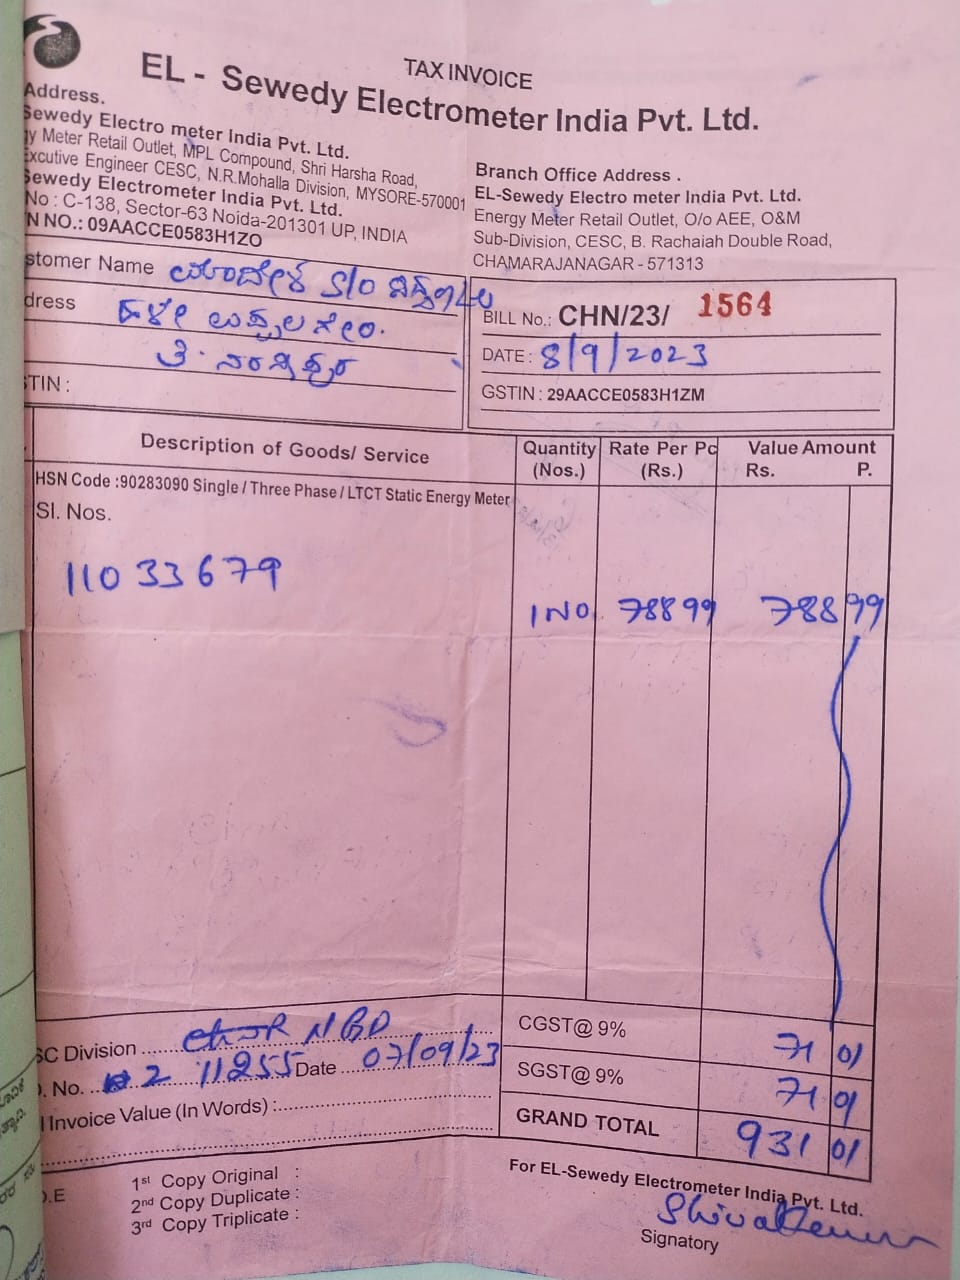 TAX INVOICE
EL - Sewedy Electrometer India Pvt. Ltd.
Address.
Sewedy Electro meter India Pvt. Ltd.
gy Meter Retail Outlet, MPL Compound, Shri Harsha Road,
Excutive Engineer CESC, N.R.Mohalla Division, MYSORE-570001
Sewedy Electrometer India Pvt. Ltd.
No : C-138, Sector-63 Noida-201301 UP, INDIA
N NO.: 09AACCE0583H1ZO
Branch Office Address .
EL-Sewedy Electro meter India Pvt. Ltd.
Energy Meter Retail Outlet, O/o AEE, O&M
Sub-Division, CESC, B. Rachaiah Double Road,
CHAMARAJANAGAR - 571313
stomer Name S/o
dress
STIN :
BILL No.: CHN/23/ 1564
DATE : 8/9/2023
GSTIN : 29AACCE0583H1ZM
Description of Goods/ Service Quantity (Nos.) Rate Per Pc (Rs.) Value Amount Rs. P.
HSN Code :90283090 Single / Three Phase / LTCT Static Energy Meter
Sl. Nos.
11033679
1 NO 788 99 788 99
CGST@ 9% 71 01
SGST@ 9% 71 01
GRAND TOTAL 931 01
SC Division NBD
. No. 11255 Date 07/09/23
l Invoice Value (In Words) :
.E
1st Copy Original :
2nd Copy Duplicate :
3rd Copy Triplicate :
For EL-Sewedy Electrometer India Pvt. Ltd.
Signatory